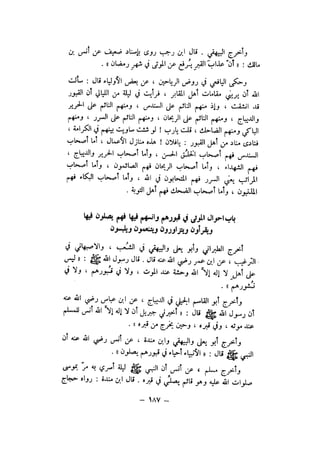 وأخرج البيهقي . قال ابن رجب روى بإسناد ضعيف عن أنس بن
مالك : « أنّ عذابَ القبر يُرفع عن الموتى في شهر رمضان » .
وحكى اليافعي في روض الرياحين ، عن بعض الأولياء قال : سألت
الله أن يريني مقامات أهل المقابر ، فرأيت في ليلة من الليالي أن القبور
قد انشقت ، وإذ منهم النائم على السندس ، ومنهم النائم على الحرير
والديباج ، ومنهم النائم على الريحان ، ومنهم النائم على السرر ، ومنهم
الباكي ومنهم الضاحك ، قلت يارب ! لو شئت ساويت بينهم في الكرامة ،
فنادى مناد من أهل القبور : يافلان ! هذه منازل الأعمال ، أما أصحاب
السندس فهم أصحاب الخُلُق الحسن ، وأما أصحاب الحرير والديباج ،
فهم الشهداء ، وأما أصحاب الريحان فهم الصائمون ، وأما أصحاب
المراتب يعني السرر فهم المتحابون في الله ، وأما أصحاب البكاء فهم
المذنبون ، وأما أصحاب الضحك فهم أهل التوبة .
باب احوال الموتى في قبورهم وانسهم فيها فهم يصلون فيها
ويقرأون ويتزاورون ويتنعمون ويلبسون
أخرج الطبراني وأبو يعلى والبيهقي في الشُّعب ، والاصبهاني في
الترغيب ، عن ابن عمر رضي الله عنه قال . قال رسول الله ﷺ : « ليس
على أهل لا إله إلاّ الله وحشة عند الموت ، ولا في قبورهم ، ولا في
نُشورهم » .
وأخرج أبو القاسم الجبلي في الديباج ، عن ابن عباس رضي الله عنه
أن رسول الله ﷺ قال : « أخبرني جبريل أن لا إله إلاّ الله أنس للمسلم
عند موته ، وفي قبره ، وحين يخرج من قبره » .
وأخرج أبو يعلى والبيهقي وابن مندة ، عن أنس رضي الله عنه أن
النبي ﷺ قال : « الأنبياء أحياء في قبورهم يصلون » .
وأخرج مسلم ، عن أنس أن النبي ﷺ ليلة أسري به مرّ بموسى
صلوات الله عليه وهو قائم يصلّي في قبره . قال ابن مندة : رواه حجاج
- ١٨٧ -